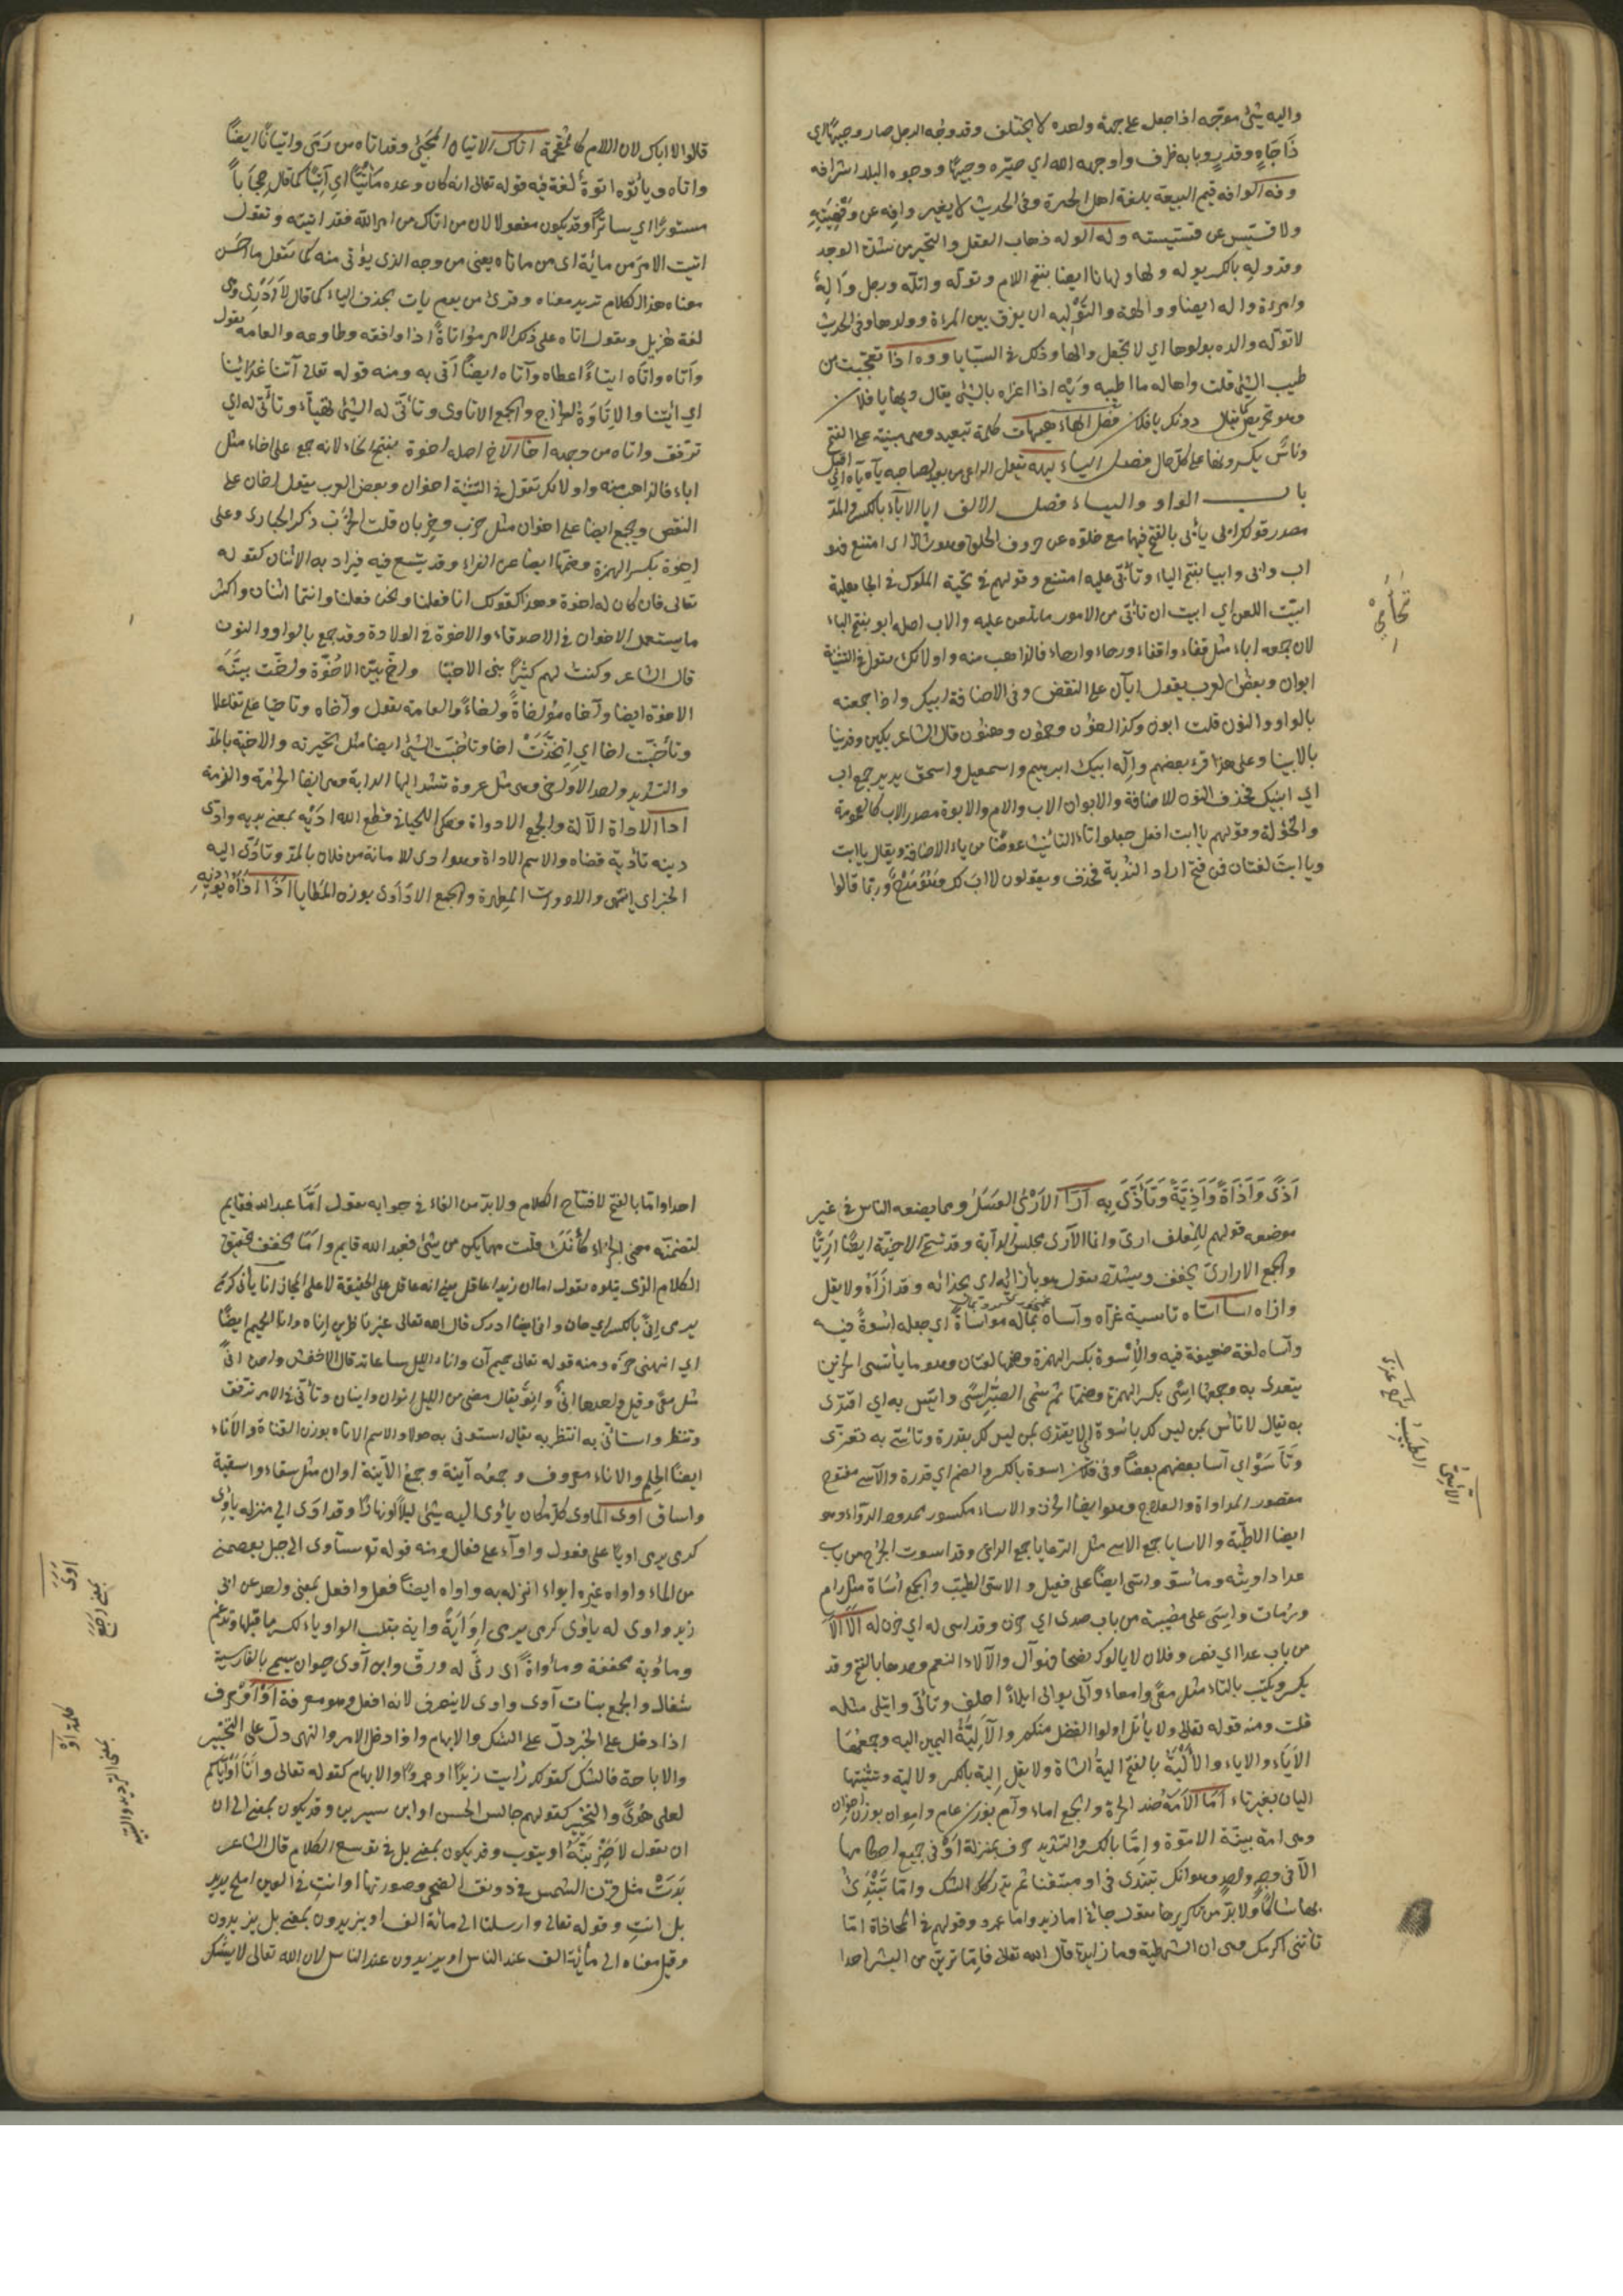 واليه شئ موجه اذا جعل على جهة واحدة لا يختلف وقد وجه الرجل صار وجيها اي
ذا جاه وقدر وبابه ظرف واوجهه الله اي صيره وجيها ووجوه البلد اشرافه
وفه الوافه قيم البيعة بلغة اهل الحيرة وفي الحديث لا يغير وافه عن وفهيته
ولا قسيس عن قسيسته وله الوله ذهاب العقل والتحير من شدة الوجد
وقد وله بالكسر يوله ولها وولهانا ايضا بفتح اللام وتوله واتله ورجل واله
وامرءة واله ايضا ووالهة والتوليه ان يفرق بين المرءة وولدها وفي الحديث
لا توله والدة بولدها اي لا تجعل والها وذلك في السبايا ووه اذا تعجبت من
طيب الشئ قلت واها له ما اطيبه ويه اذا اغراه بالشئ يقال ويها يا فلان
وهو تحريض كما يقال دونك يا فلان فصل الهاء هيهات كلمة تبعيد وهي مبنية على الفتح
وناس يكسرونها على كل حال فصل الياء يهيه يقول الراعي من بعيد لصاحبه ياه ياه اي اقبل
باب الواو والياء فصل الالف ابا الاباء بالكسر والمد
مصدر قولك ابى يأبى بالفتح فيهما مع خلوه من حروف الحلق وهو شاذ اى امتنع فهو
اب وابى وابيا بفتح الباء وتأبى عليه امتنع وقولهم في تحية الملوك في الجاهلية
ابيت اللعن اي ابيت ان تأتي من الامور ما تلعن عليه والاب اصله ابو بفتح الباء
لان جمعه اباء مثل قفاء واقفاء ورحاء وارحاء فالذاهب منه واو لانك تقول في التثنية
ابوان وبعض العرب يقول ابان على النقص وفي الاضافة ابيك واذا جمعته
بالواو والنون قلت ابون وكذا اخون وحمون وهنون قال الشاعر بكين وفديننا
بالابينا وعلى هذا قرء بعضهم واله ابيك ابرهيم واسمعيل واسحق يريد جمع اب
اي ابينك فحذف النون للاضافة والابوان الاب والام والابوة مصدر الاب كالعمومة
والخؤلة وقولهم يا ابت افعل جعلوا تاء التانيث عوضا من ياء الاضافة ويقال يا ابت
ويا ابت لغتان فمن فتح اراد الندبة فحذف ويقولون لا اب لك وهو مدح وربما قالوا
قالوا لا اباك لان اللام كالمقحمة اتاك الاتيان المجيئ وقد اتاه من رمى واتيانا ايضا
واتاه وياتوه اتوة لغة فيه قوله تعالى انه كان وعده مأتيا اي آتيا كما قال حجابا
مستورا اي ساترا وقد يكون مفعولا لان من اتاك من امر الله فقد اتيته وتقول
اتيت الامر من مأتيه اى من مأتاه يعني من وجهه الذي يؤتى منه كما تقول ما احسن
معناه هذا الكلام تريد معناه وقرئ من يوم يات بحذف الياء كما قال لا ادر وهي
لغة هذيل وتقول اتاه على ذلك الامر مؤاتاة اذا وافقه وطاوعه والعامة تقول
واتاه واتاه ايتاء اعطاه وآتاه ايضا اتى به ومنه قوله تعالى آتنا غداءنا
اي ائتنا والاتاوة الخراج والجمع الاتاوى وتأتى له الشئ تهيأ وتأتى له اي
ترفق واتاه من وجهه اخا الاخ اصله اخو بفتح الخاء لانه جمع على اخاء مثل
اباء فالذاهب منه واو لانك تقول في التثنية اخوان وبعض العرب يقول اخان على
النقص ويجمع ايضا على اخوان مثل خرب وخربان قلت الخرب ذكر الحبارى وعلى
اخوة بكسر الهمزة وضمها ايضا عن الفراء وقد يتسع فيه فيراد به الاثنان كقوله
تعالى فان كان له اخوة وهذا كقولك انا فعلنا ونحن فعلنا وانتما اثنان واكثر
ما يستعمل الاخوان في الاصدقاء والاخوة في الولادة وقد جمع بالواو والنون
قال الشاعر وكنت لهم كشر بني الاخينا واخ بين الاخوة واخت بينة
الاخوة ايضا وآخاه مؤاخاة واخاء والعامة تقول وآخاه وتاخيا على تفاعلا
وتأخيت اخا اي اتخذت اخا وتاخيت الشئ ايضا مثل تحريته والاخية بالمد
والتشديد واحد الاواخي وهي مثل عروة تشد اليها الدابة وهي ايضا الحرمة والذمة
ادا الاداة الآلة والجمع الادواة وحكى اللحياني قطع الله اديه بمعنى يديه وادى
دينه تأدية قضاه والاسم الاداء وهو ادى للامانة من فلان بالمد وتأدى اليه
الخبر اى انتهى والاداوة المطهرة والجمع الاداوى بوزن المطايا اذا اذاه يؤذيه
تحأمي
اذى واذاة واذية وتأذى به ارا الارى العسل ومما يضعه الناس في غير
موضعه قولهم للمعلف ارى وانما الآرى محبس الدابة وقد تسمى الاخية ايضا اريا
والجمع الاواري يخفف ويشدد تقول هو بازائه اى بحذائه وقد ازاه ولا يقل
وازاه اسا اساه تاسية عزاه وآساه بماله مواساة اي جعله اسوة فيه
وآساه لغة ضعيفة فيه والاسوة بكسر الهمزة وضمها لغتان وهو ما يأتسى الحزين
يتعزى به وجمعها اسى بكسر الهمزة وضمها ثم سمى الصبر اسى وائتسى به اي اقتدى
به يقال لا تأتس بمن ليس لك باسوة اي لا تقتدى بمن ليس لك بقدوة وتأسى به تعزى
وتاسوا اي آسا بعضهم بعضا ولي في فلان اسوة بالكسر والضم اي قدوة والاسى مفتوح
مقصور المداواة والعلاج وهو ايضا الحزن والاساء مكسور ممدود الدواء وهو
ايضا الاطبة والاسايا جمع الاسى مثل الرعايا جمع الراعي وقد اسوت الجرح من باب
عدا داويته وماسو واسى ايضا على فعيل والاسى الطبيب والجمع اساة مثل رام
ورماة واسى على مصيبة من باب صدى اي حزن وقد اسى له اي حزن له الا الا
من باب عدا اي قصر وفلان لا يالوك نصحا فهو آل والآلاء النعم وحدها بالفتح وقد
يكسر ويكتب بالياء مثل معى وامعاء وآلى يوالى ايلاء احلف وتألى وايتلى مثله
قلت ومنه قوله تعالى ولا يأتل اولوا الفضل منكم والالية اليمين اليه وجمعها
الايا والاياء والالية بالفتح الية الشاة ولا يقل الية بالكسر ولا لية وتثنيتها
اليان بغير تاء اما الامة ضد الحرة والجمع اماء وآم بوزن عام واموان بوزن اخوان
وهي امة بينة الاموة واما بالكسر والتشديد حرف بمنزلة او في جميع احكامها
الا في وجه واحد وهو انك تبتدى في او متيقنا ثم يدركك الشك واما تبتدئ
بها شاكا ولا بد من تكريرها تقول جاني اما زيد واما عمرو وقولهم في المجازاة اما
تأتني اكرمك هي ان الشرطية وما زايدة قال الله تعالى فاما ترين من البشر احدا
الاسى الطبيب
احدا واما بالفتح لافتتاح الكلام ولا بد من الفاء في جوابه تقول اما عبد الله فقايم
لتضمنه معنى الجزاء كأنك قلت مهما يكن من شئ فعبد الله قايم واما مخفف تحقيق
الكلام الذي يتلوه تقول اما ان زيدا عاقل يعني انه عاقل على الحقيقة لا على المجاز انا يأنى كرمى
يرمى انى بالكسر اي حان وانى ايضا ادرك قال الله تعالى غير ناظرين اناه وانا الحميم ايضا
اي انتهى حره ومنه قوله تعالى حميم آن واناء الليل ساعاته قال الاخفش واحدها انى
مثل معى وقيل واحدها انى وانو يقال مضى من الليل انوان وانيان وتأنى في الامر ترفق
وتنظر واستأنى به انتظر به يقال استوني به حولا والاسم الاناة بوزن القناة والاناء
ايضا الحلم والاناء معروف وجمعه آنية وجمع الآنية اوان مثل سقاء واسقية
واساق اوى الماوى كل مكان يأوى اليه شئ ليلا او نهارا وقد اوى الى منزله يأوى
كرمى يرمى اويا على فعول واواء على فعال ومنه قوله تع سآوى الى جبل يعصمني
من الماء واواه غيره ايواء انزله به واواه ايضا فعل وافعل بمعنى واحد عن ابى
زيد واوى له ياوى كرمى يرمى اواية واية بقلب الواو ياء لكسر ما قبلها وتدغم
وماوية مخففة وماواة اى رثى له ورق وابن آوى حيوان يسمى بالفارسية
شغال والجمع بنات آوى واوى لا ينصرف لانه افعل وهو معرفة او او حرف
اذا دخل على الخبر دل على الشك والابهام واذا دخل الامر والنهى دل على التخيير
والاباحة فالشك كقولك رايت زيدا او عمروا والابهام كقوله تعالى وانا او اياكم
لعلى هدى والتخيير كقولهم جالس الحسن او ابن سيرين وقد يكون بمعنى الى ان
ان تقول لاضربنه او يتوب وقد يكون بمعنى بل في توسع الكلام قال الشاعر
بدت مثل قرن الشمس في رونق الضحى وصورتها او انت في العين املح يريد
بل انت وقوله تعالى وارسلنا الى مائة الف او يزيدون بمعنى بل يزيدون
وقيل معناه الى مأية الف عند الناس او يزيدون عند الناس لان الله تعالى لا يشك
اوى
بمعنى رجع
كلمة او